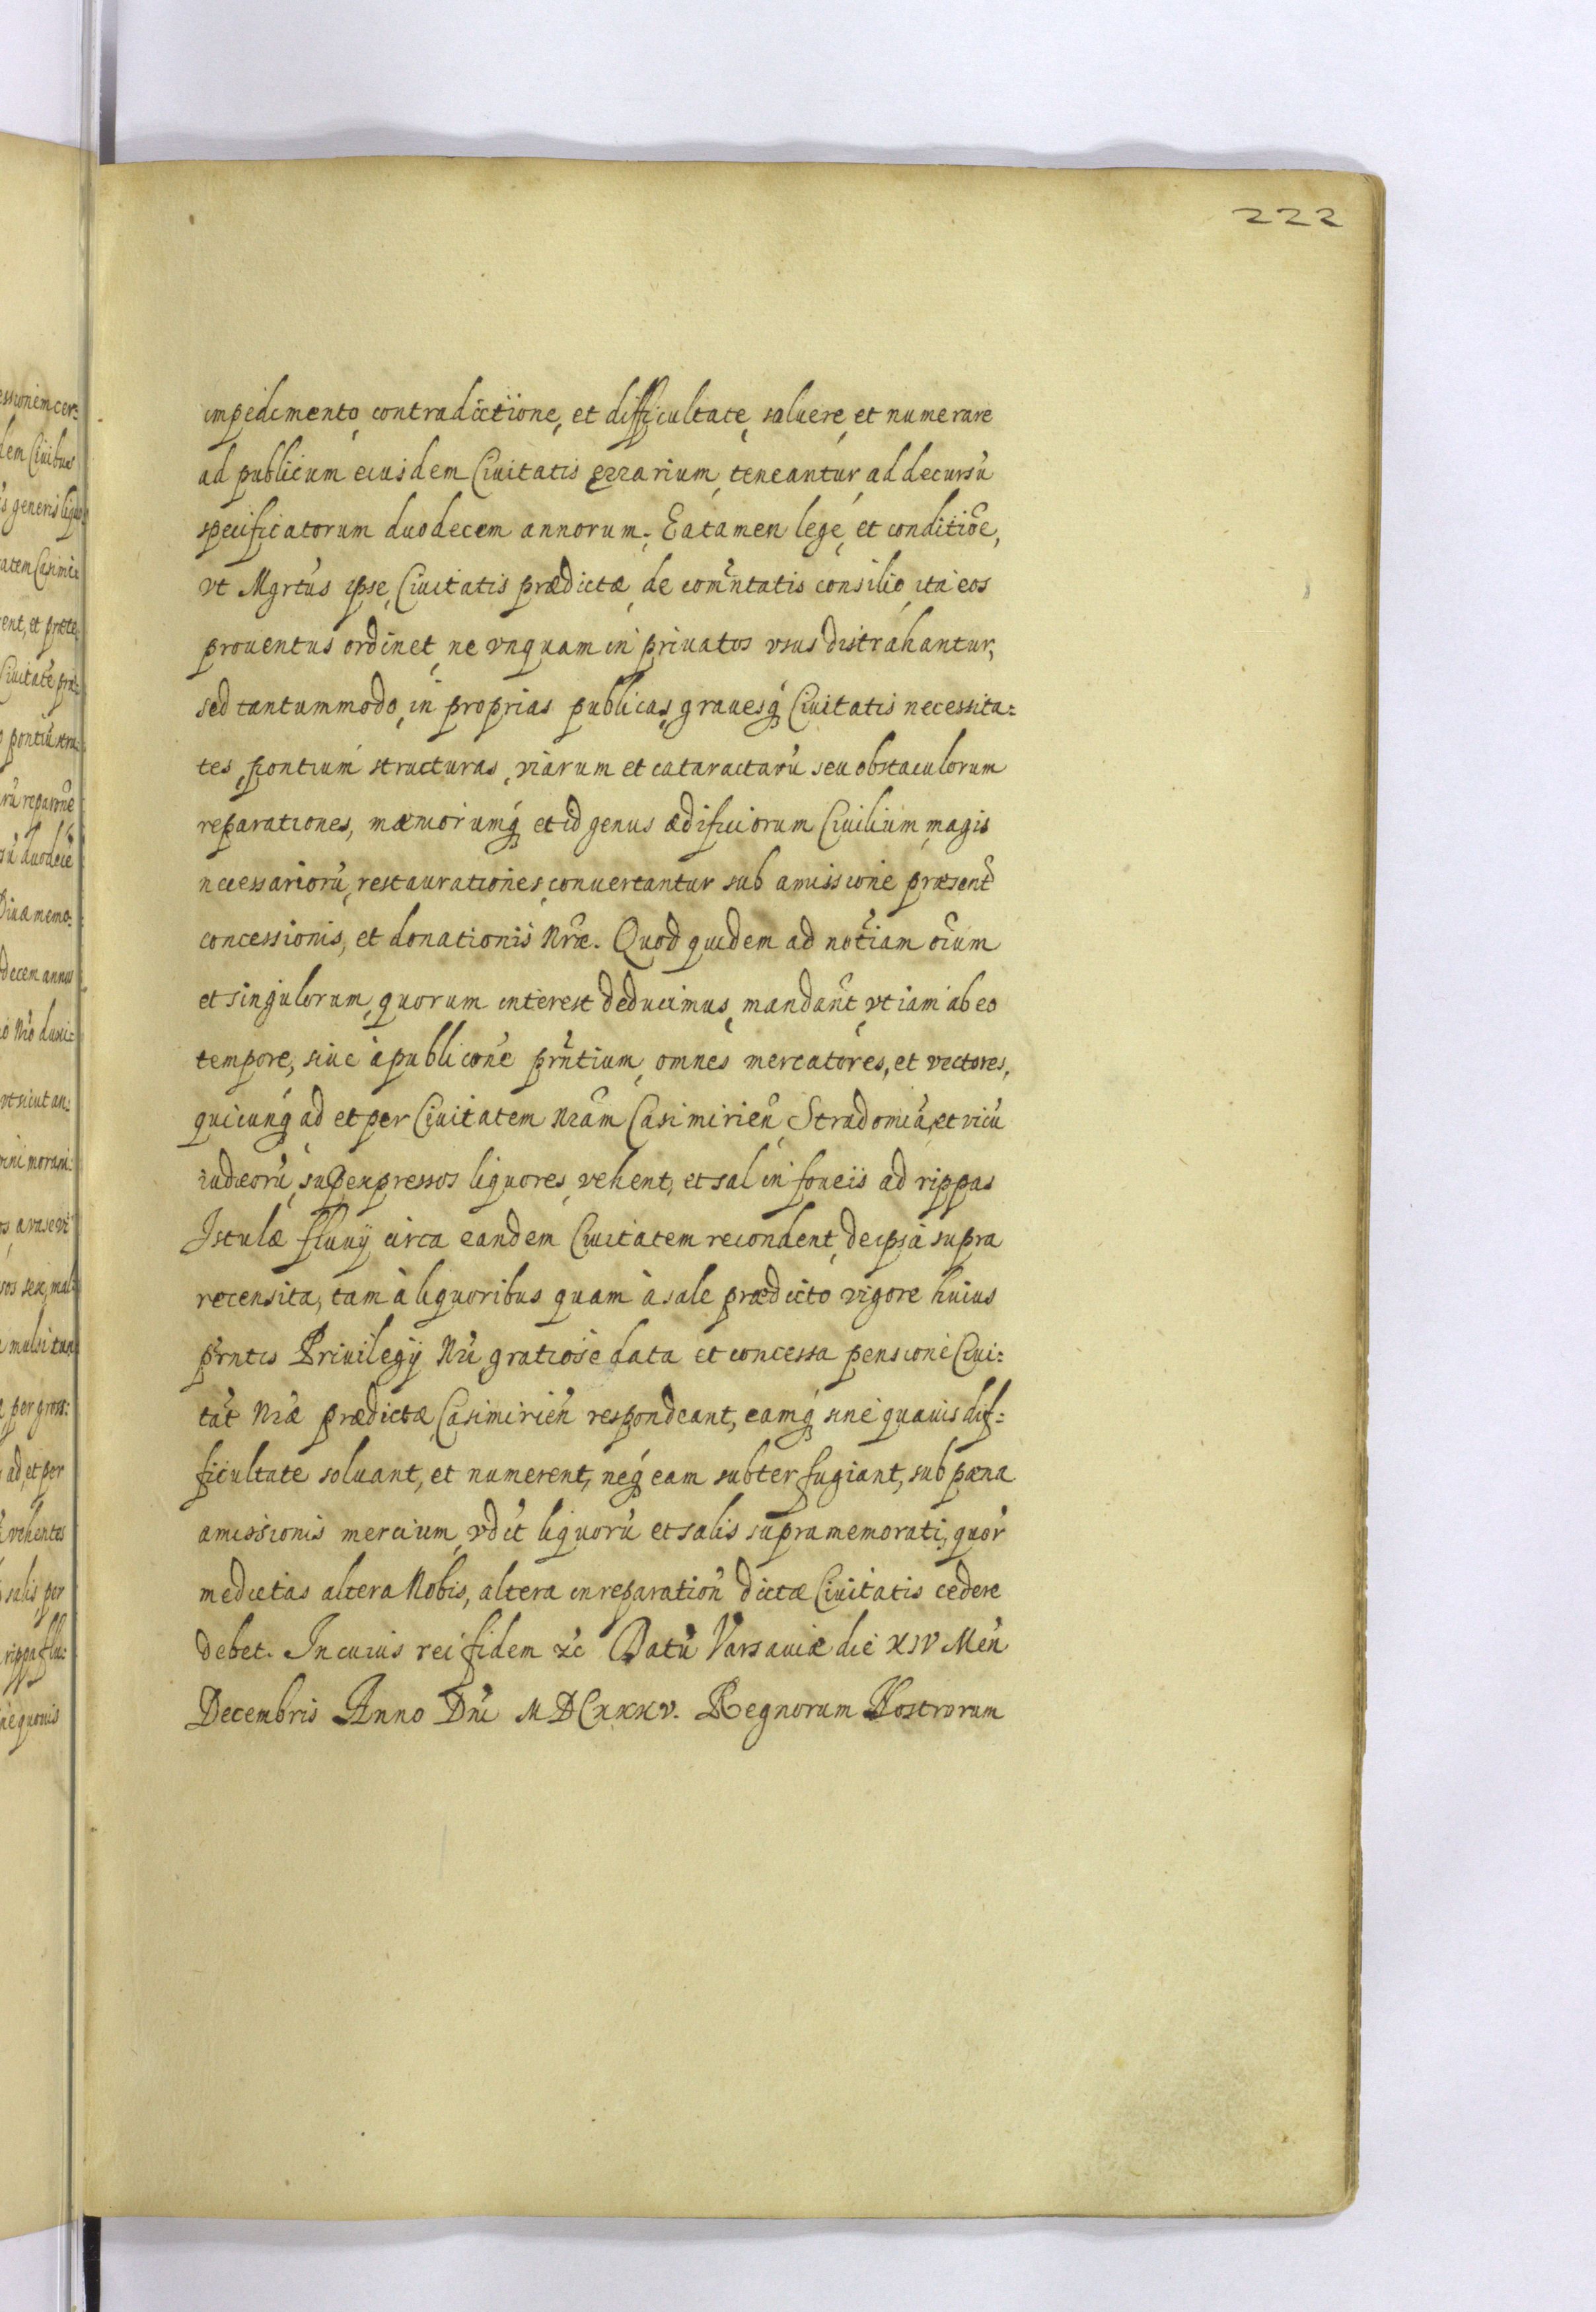 222
impedimento, contradictione, et difficultate, saluere, et numerare
ad publicum eiusdem Ciuitatis ęrrarium, teneantur, ad decursũ
specificatorum duodecem annorum. Ea tamen lege, et conditiõe,
vt Mgrtus ipse, Ciuitatis prædictæ, de com̃ntatis consilio, ita eos
prouentus ordinet, ne vnquam in priuatos vsus distrahantur,
sed tantummodo, in proprias publicas, grauesq́ Ciuitatis necessita=
tes, pontium structuras, viarum et cataractarũ seu obstaculorum
reparationes, mæniorumq́ et id genus ædificiorum Ciuilium, magis
necessariorũ, restaurationes, conuertantur sub amissione præsent̃
concessionis, et donationis Nr̃æ. Quod quidem ad not̃iam oĩum
et singulorum, quorum interest deducimus, mandañt, vt iam ab eo
tempore, siue à publicoñe pr̃ntium, omnes mercatores, et vectores,
quicunq́ ad et per Ciuitatem Nrãm Casimirieñ, Stradomiã, et vicũ
iudæorũ, supexpressos liquores, vehent, et sal in foueis ad rippas
Istulæ fluuij circa eandem Ciuitatem recondent, de ipsa supra
recensita, tam à liquoribus quam à sale prædicto vigore huius
pr̃ntis Priuilegij Nr̃i gratiose data et concessa pensione Ciui=
tat̃ Nr̃æ prædictæ, Casimirieñ respondeant, eamq́ sine quauis dif=
ficultate soluant, et numerent, neq́ eam subterfugiant, sub pæna
amissionis mercium, vdct liquorũ et salis supramemorati, quor̃
medietas altera Nobis, altera in reparatioñ dictæ Ciuitatis cedere
debet. In cuius rei fidem &c Datũ Varsauiæ die XIV Meñ
Decembris Anno Dnĩ MDCXXXV. Regnorum Nostrorum